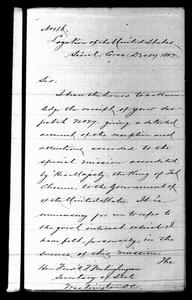 No 14.
Legation of the United States
Seoul, Corea, Dec 17, 188
Sir:
I have the honor to acknow
ledge the receipt of your des
patch No 27, giving a detailed
account of the reception and
attentions accorded to the
special mission accredited
by His Majesty, the King of Tah
Chosun, to the Government of
of the United States. It is
unnecessary for me to refer to
the great interest which I
have felt, personally, in the
success of this mission. The
Hon. Fredk T Frelinghuysen
Secretary of State
Washington DC